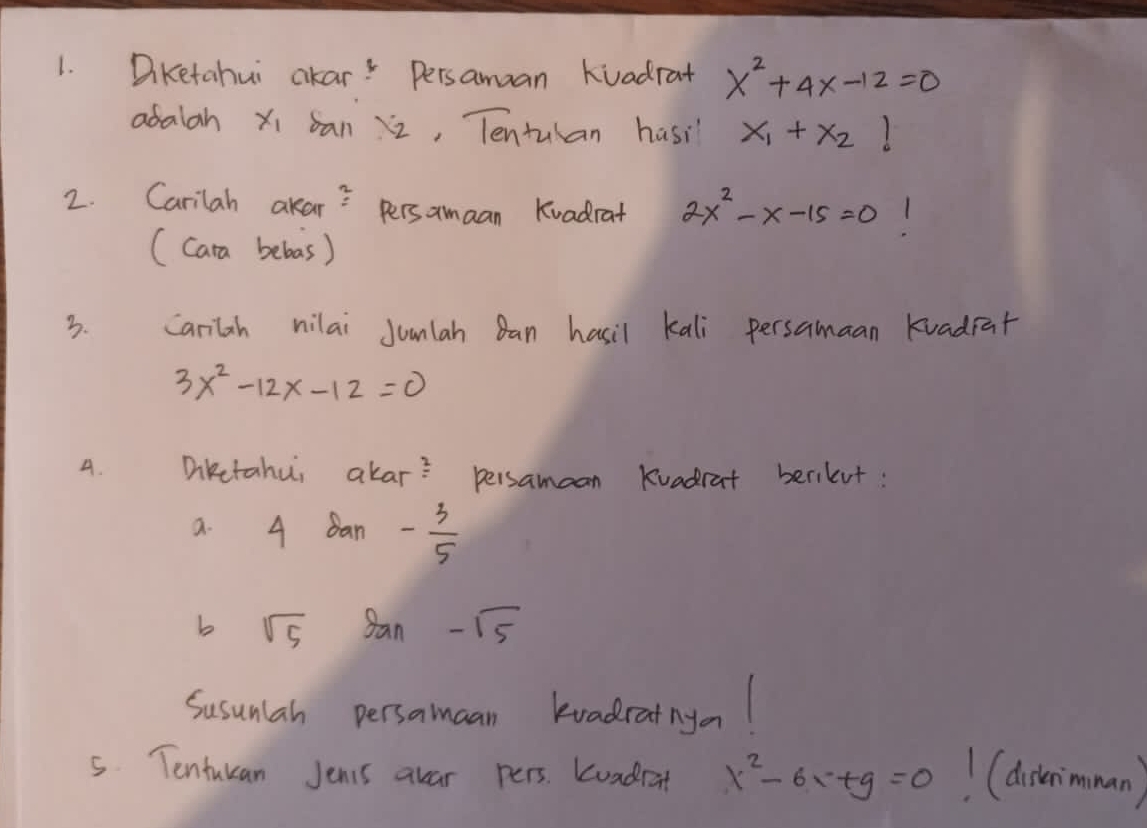 1. Diketahui akar² persamaan kuadrat x² + 4x - 12 = 0
adalah x₁ dan x₂, Tentukan hasil x₁ + x₂ !
2. Carilah akar² persamaan kuadrat 2x² - x - 15 = 0 !
( Cara bebas )
3. Carilah nilai jumlah dan hasil kali persamaan kuadrat
3x² - 12x - 12 = 0
4. Diketahui akar² persamaan kuadrat berikut :
a. 4 dan - 3/5
b √5 dan -√5
Susunlah persamaan kuadratnya !
5. Tentukan Jenis akar pers. kuadrat x² - 6x + 9 = 0 ! (diskriminan)